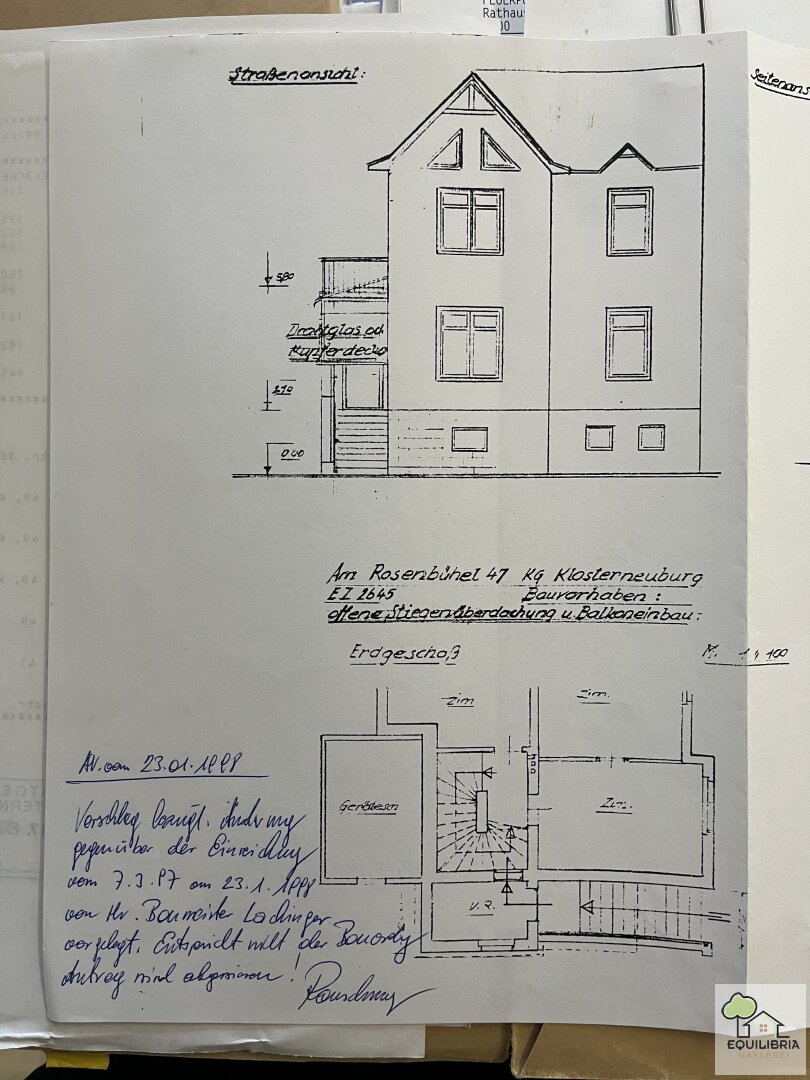 Rathaus
00
Straßenansicht:
Seitenans
5,80
Drahtglas od
Kupferdeck
2,10
0,00
Am Rosenbühel 47 KG Klosterneuburg
EZ 2645 Bauvorhaben:
offene Stiegenüberdachung u. Balkoneinbau:
Erdgeschoß M. 1:100
Zim Zim.
Zim.
V.R.
AV. vom 23.01.1998
Vorschlag bezügl. Änderung
gegenüber der Einreichung
vom 7.3.97 am 23.1.1998
von Hr. Baumeister Lachinger
vorgelegt. Entspricht nicht der Bauordg
Antrag wird abgewiesen!
EQUILIBRIA
MAKLEREI